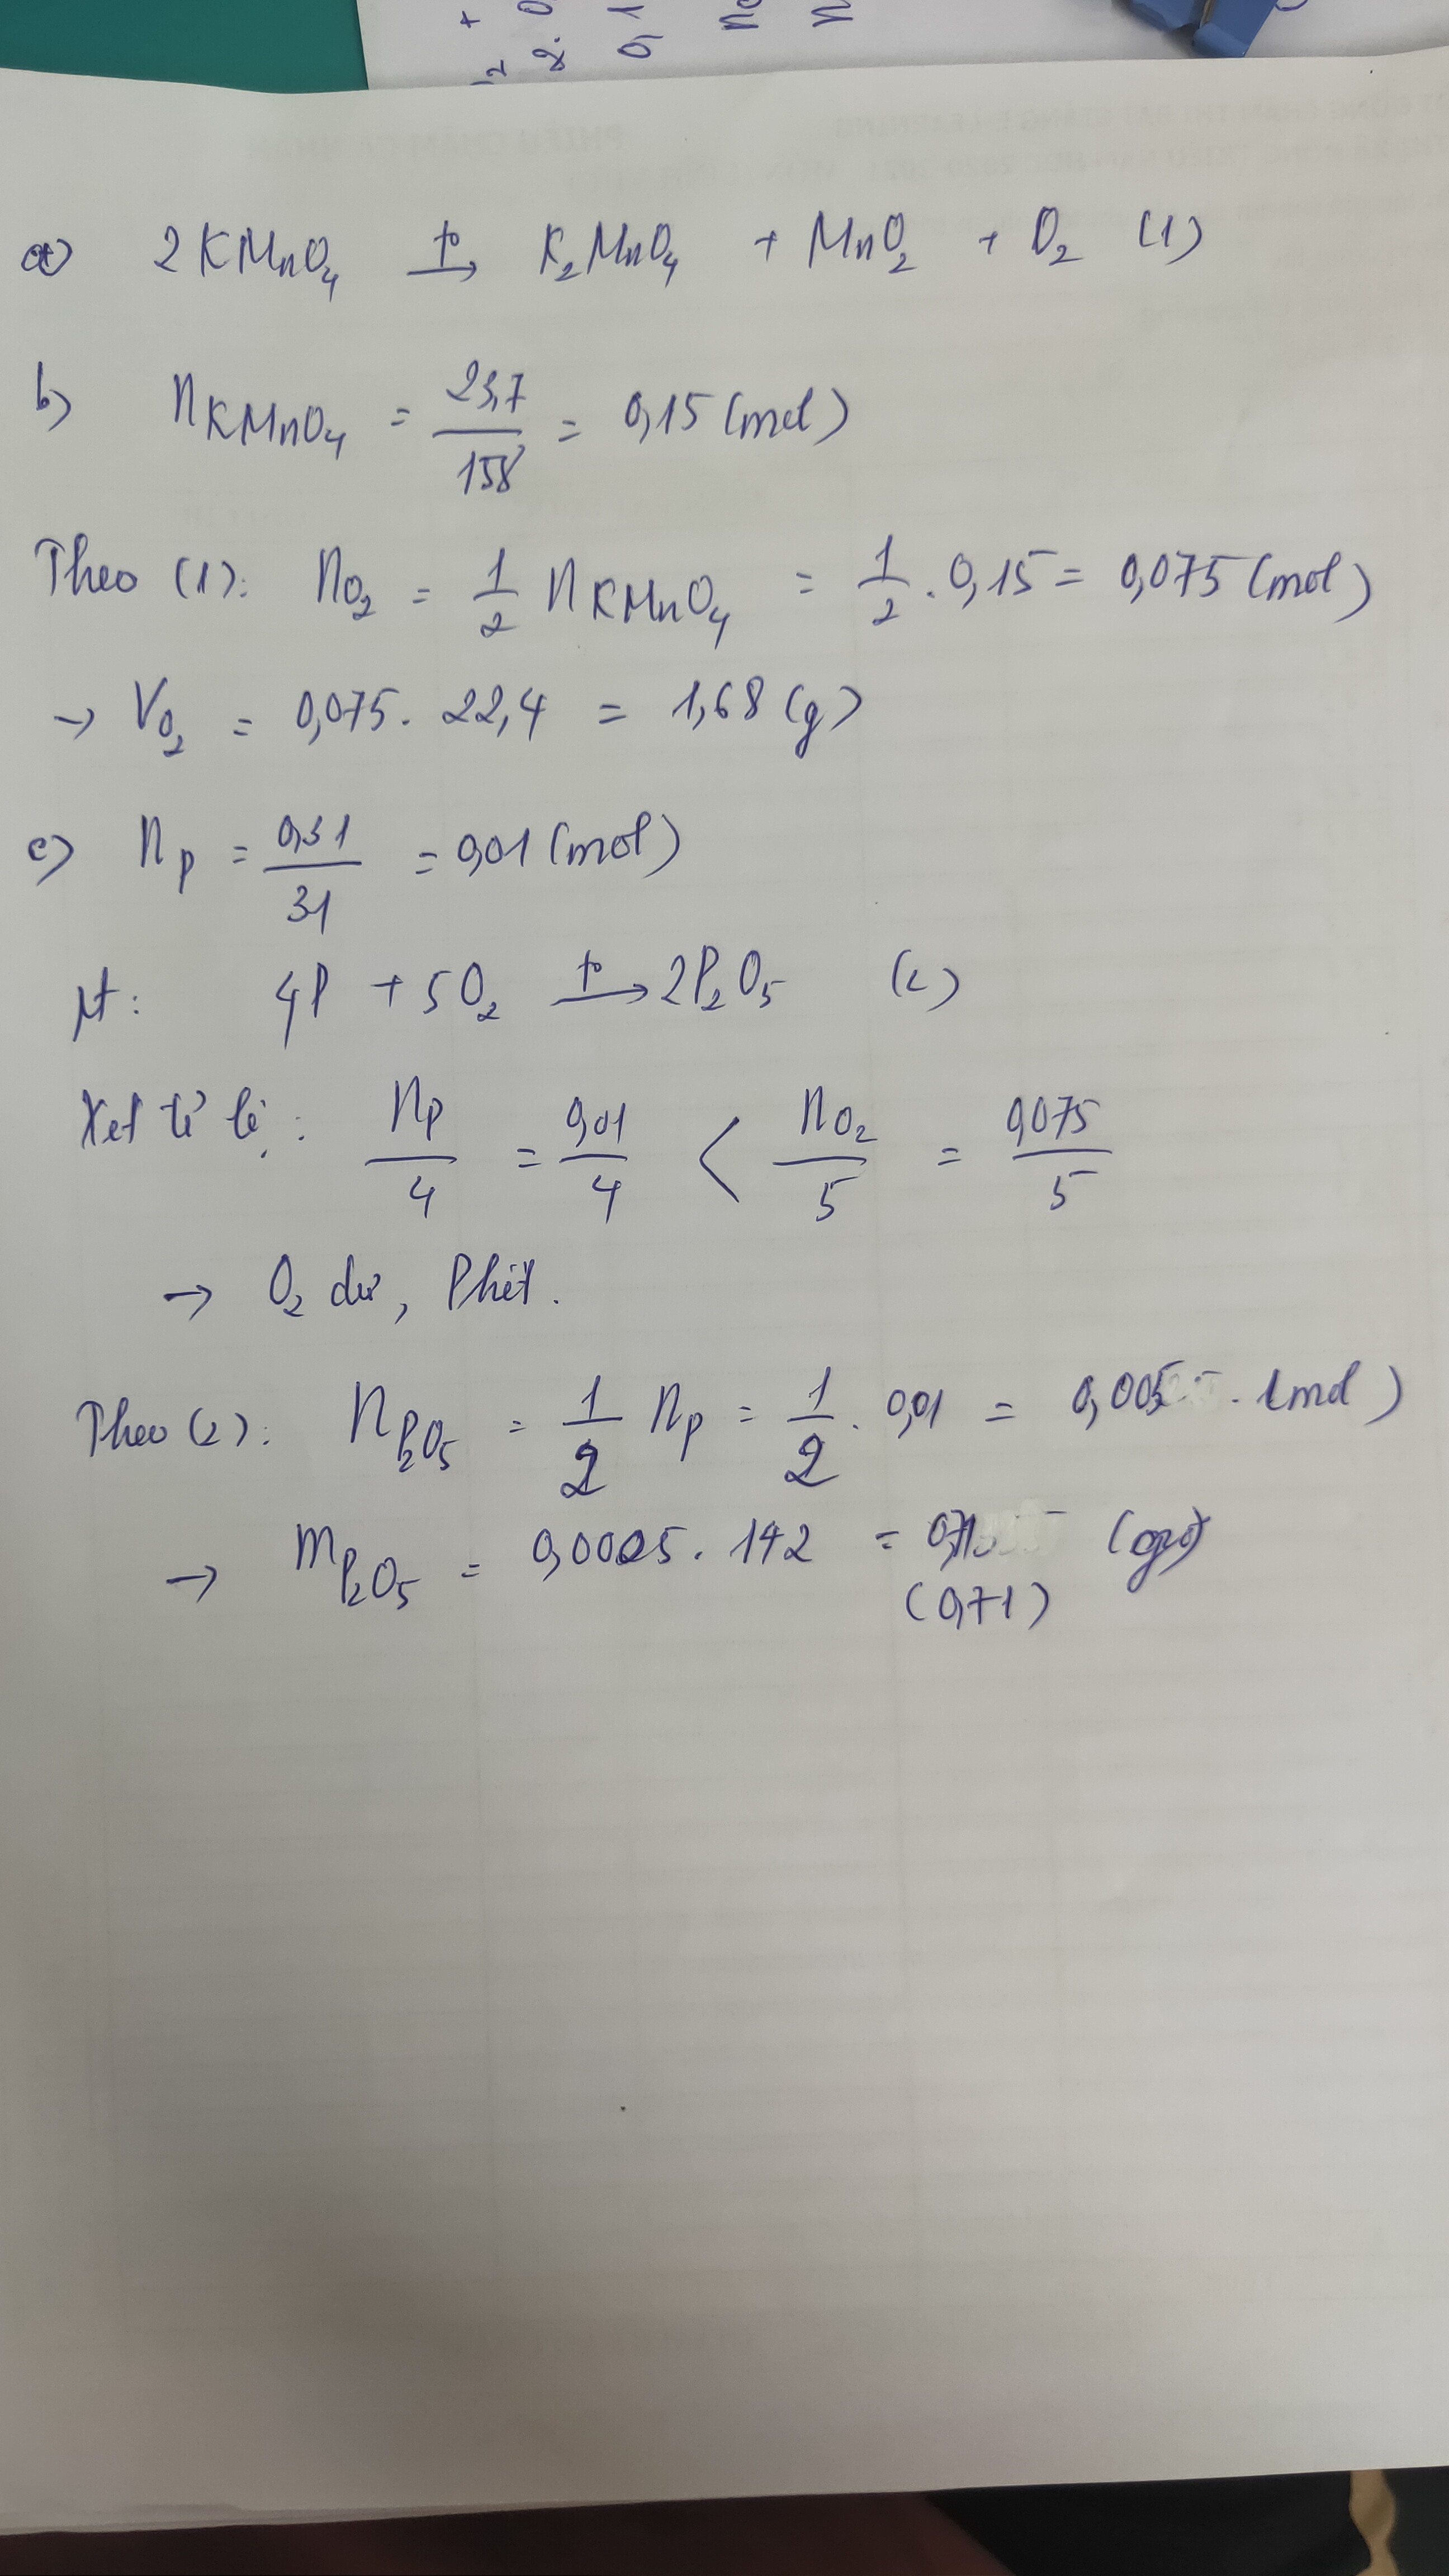 a) 2KMnO₄ —t°→ K₂MnO₄ + MnO₂ + O₂ (1)
b) n KMnO₄ = 23,7/158 = 0,15 (mol)
Theo (1): n O₂ = 1/2 n KMnO₄ = 1/2 . 0,15 = 0,075 (mol)
→ V O₂ = 0,075 . 22,4 = 1,68 (g)
c) n P = 0,31/31 = 0,01 (mol)
pt: 4P + 5O₂ —t°→ 2P₂O₅ (2)
Xét tỉ lệ: n P/4 = 0,01/4 < n O₂/5 = 0,075/5
→ O₂ dư, P hết.
Theo (2): n P₂O₅ = 1/2 n P = 1/2 . 0,01 = 0,005 (mol)
→ m P₂O₅ = 0,0005 . 142 = 0,71
(0,71)